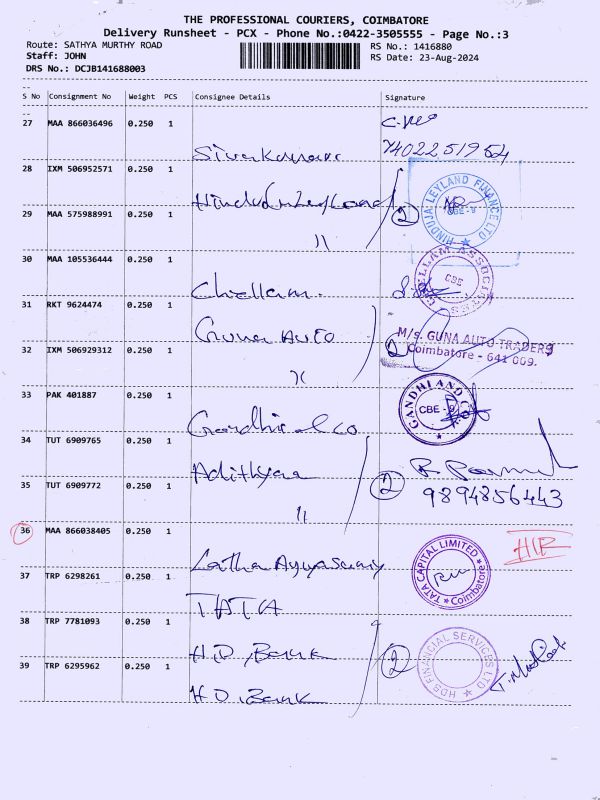 THE PROFESSIONAL COURIERS, COIMBATORE
Delivery Runsheet - PCX - Phone No.:0422-3505555 - Page No.:3
Route: SATHYA MURTHY ROAD
RS No.: 1416880
Staff: JOHN
RS Date: 23-Aug-2024
DRS No.: DCJB141688003
--
S No Consignment No Weight PCS Consignee Details Signature
--
27 MAA 866036496 0.250 1
7402251954
28 IXM 506952571 0.250 1
HINDUJA LEYLAND FINANCE LTD
CBE - 9
2
29 MAA 575988991 0.250 1
"
30 MAA 105536444 0.250 1
Chellam
CHELLAM ASSOCIATES
CBE
31 RKT 9624474 0.250 1
Guna AUTO
M/s. GUNA AUTO TRADERS
Coimbatore - 641 009.
2
32 IXM 506929312 0.250 1
"
33 PAK 401887 0.250 1
Gandhi and co
GANDHI AND CO
CBE - 9
34 TUT 6909765 0.250 1
Adithyaa
2
9894856443
35 TUT 6909772 0.250 1
"
36 MAA 866038405 0.250 1
Latha Ayyasamy
TATA CAPITAL LIMITED
Coimbatore
37 TRP 6298261 0.250 1
TATA
38 TRP 7781093 0.250 1
H.D. Bank
2
HDS FINANCIAL SERVICES LTD
39 TRP 6295962 0.250 1
H.D. Bank